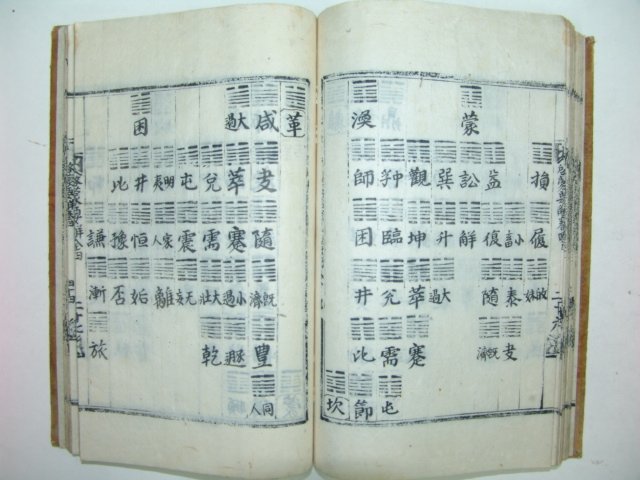 損履妹
小畜泰夬
益復隨既濟
蒙訟解
巽升大過
觀坤萃蹇
中孚臨兌需屯
渙師困井比節
坎
革
咸夬隨既濟豐同人
大過萃蹇小過遯
兌需大壯乾
屯震无妄
明夷家人離
困井恒姤
比豫否
謙漸旅